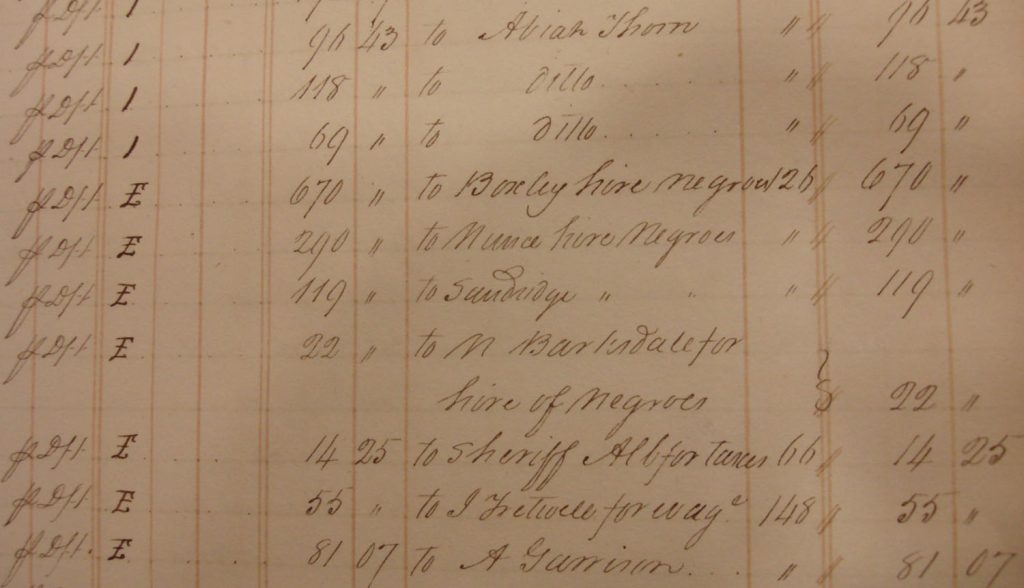 1
pDft 1 96 43 to Abiah Thorn " " 96 43
pDft 1 118 " to ditto " " 118 "
pDft 1 69 " to ditto " " 69 "
pDft E 670 " to Boxley hire negroes 126 " 670 "
pDft E 290 " to Nunce hire Negroes " " 290 "
pDft E 119 " to Sandridge " " " " 119 "
pDft E 22 " to N Barksdale for
hire of Negroes 22 "
pDft E 14 25 to Sheriff Alb for taxes 66 " 14 25
pDft E 55 " to J Fretwell for wagᵉ 148 " 55 "
pDft. E 81 07 to A Garrison " " 81 07